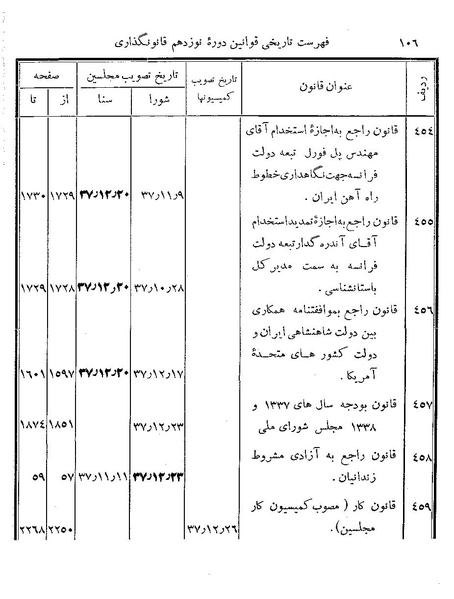 ۱۰۶ فهرست تاریخی قوانین دورهٔ نوزدهم قانونگذاری
ردیف عنوان قانون تاریخ تصویب کمیسیونها تاریخ تصویب مجلسین صفحه
شورا سنا از تا
٤٥٤ قانون راجع به اجازهٔ استخدام آقای
مهندس پل فورل تبعه دولت
فرانسه جهت نگاهداری خطوط
راه آهن ایران . ۳۷٫۱۱٫۹ ۳۷٫۱۲٫۲۰ ۱۷۲۹ ۱۷۳۰
٤٥٥ قانون راجع به اجازهٔ تمدید استخدام
آقای آندره گدار تبعه دولت
فرانسه به سمت مدیر کل
باستانشناسی . ۳۷٫۱۰٫۲۸ ۳۷٫۱۲٫۲۰ ۱۷۲۸ ۱۷۲۹
٤٥٦ قانون راجع بموافقتنامه همکاری
بین دولت شاهنشاهی ایران و
دولت کشور های متحدهٔ
آمریکا . ۳۷٫۱۲٫۱۷ ۳۷٫۱۲٫۲۰ ۱۵۹۷ ۱٦۰۱
٤٥۷ قانون بودجه سال های ۱۳۳۷ و
۱۳۳۸ مجلس شورای ملی ۳۷٫۱۲٫۲۳ ۱۸۵۱ ۱۸۷٤
٤٥۸ قانون راجع به آزادی مشروط
زندانیان . ۳۷٫۱۲٫۲۳ ۳۷٫۱۱٫۱۱ ۵۷ ۵۹
٤٥۹ قانون کار ( مصوب کمیسیون کار
مجلسین). ۳۷٫۱۲٫۲٦ ۲۲۵۰ ۲۲٦۸